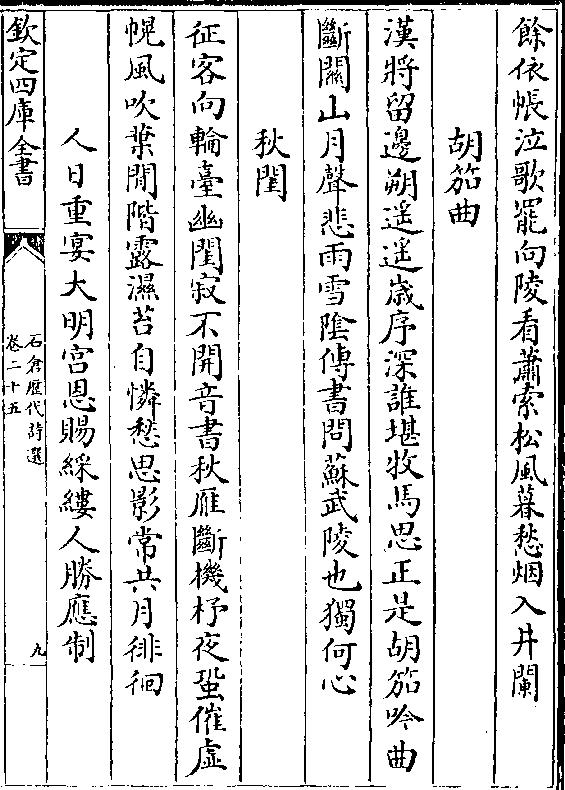 餘依帳泣歌罷向陵看蕭索松風暮愁烟入井闌
胡笳曲
漢將留邊朔遥遥歳序深誰堪牧馬思正是胡笳吟曲
斷關山月聲悲雨雪隂傳書問蘇武陵也獨何心
秋閨
征客向輪臺幽閨寂不開音書秋雁斷機杼夜蛩催虚
幌風吹葉閒階露濕苔自憐愁思影常共月徘徊
人日重宴大明宫恩賜綵縷人勝應制
欽定四庫全書
石倉歷代詩選
卷二十五
九